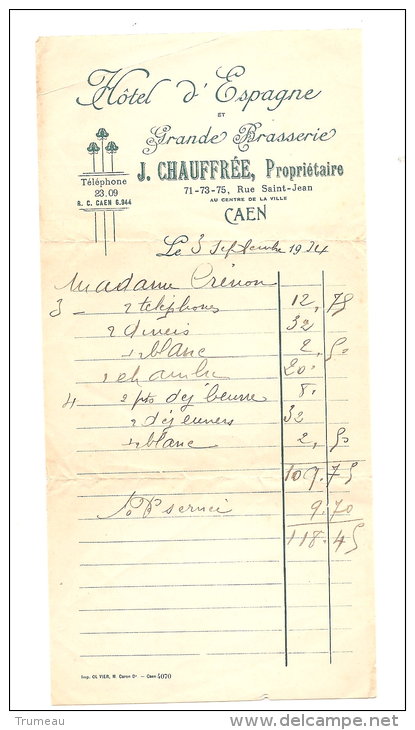 Hôtel d'Espagne
ET
Grande Brasserie
J. CHAUFFRÉE, Propriétaire
71-73-75, Rue Saint-Jean
AU CENTRE DE LA VILLE
CAEN
Téléphone
23.09
R. C. CAEN 6.944
Le 3 Septembre 1934
Madame
3 – 2 telephones 12,75
2 diners 32
1/2 blanc 2,50
1 chambre 20.
4 2 pts dej beurre 8.
2 déjeuners 32
1/2 blanc 2,50
109.75
9.70
118.45
Imp. Caron Cie - Caen 4070
Trumeau
delcampe.net